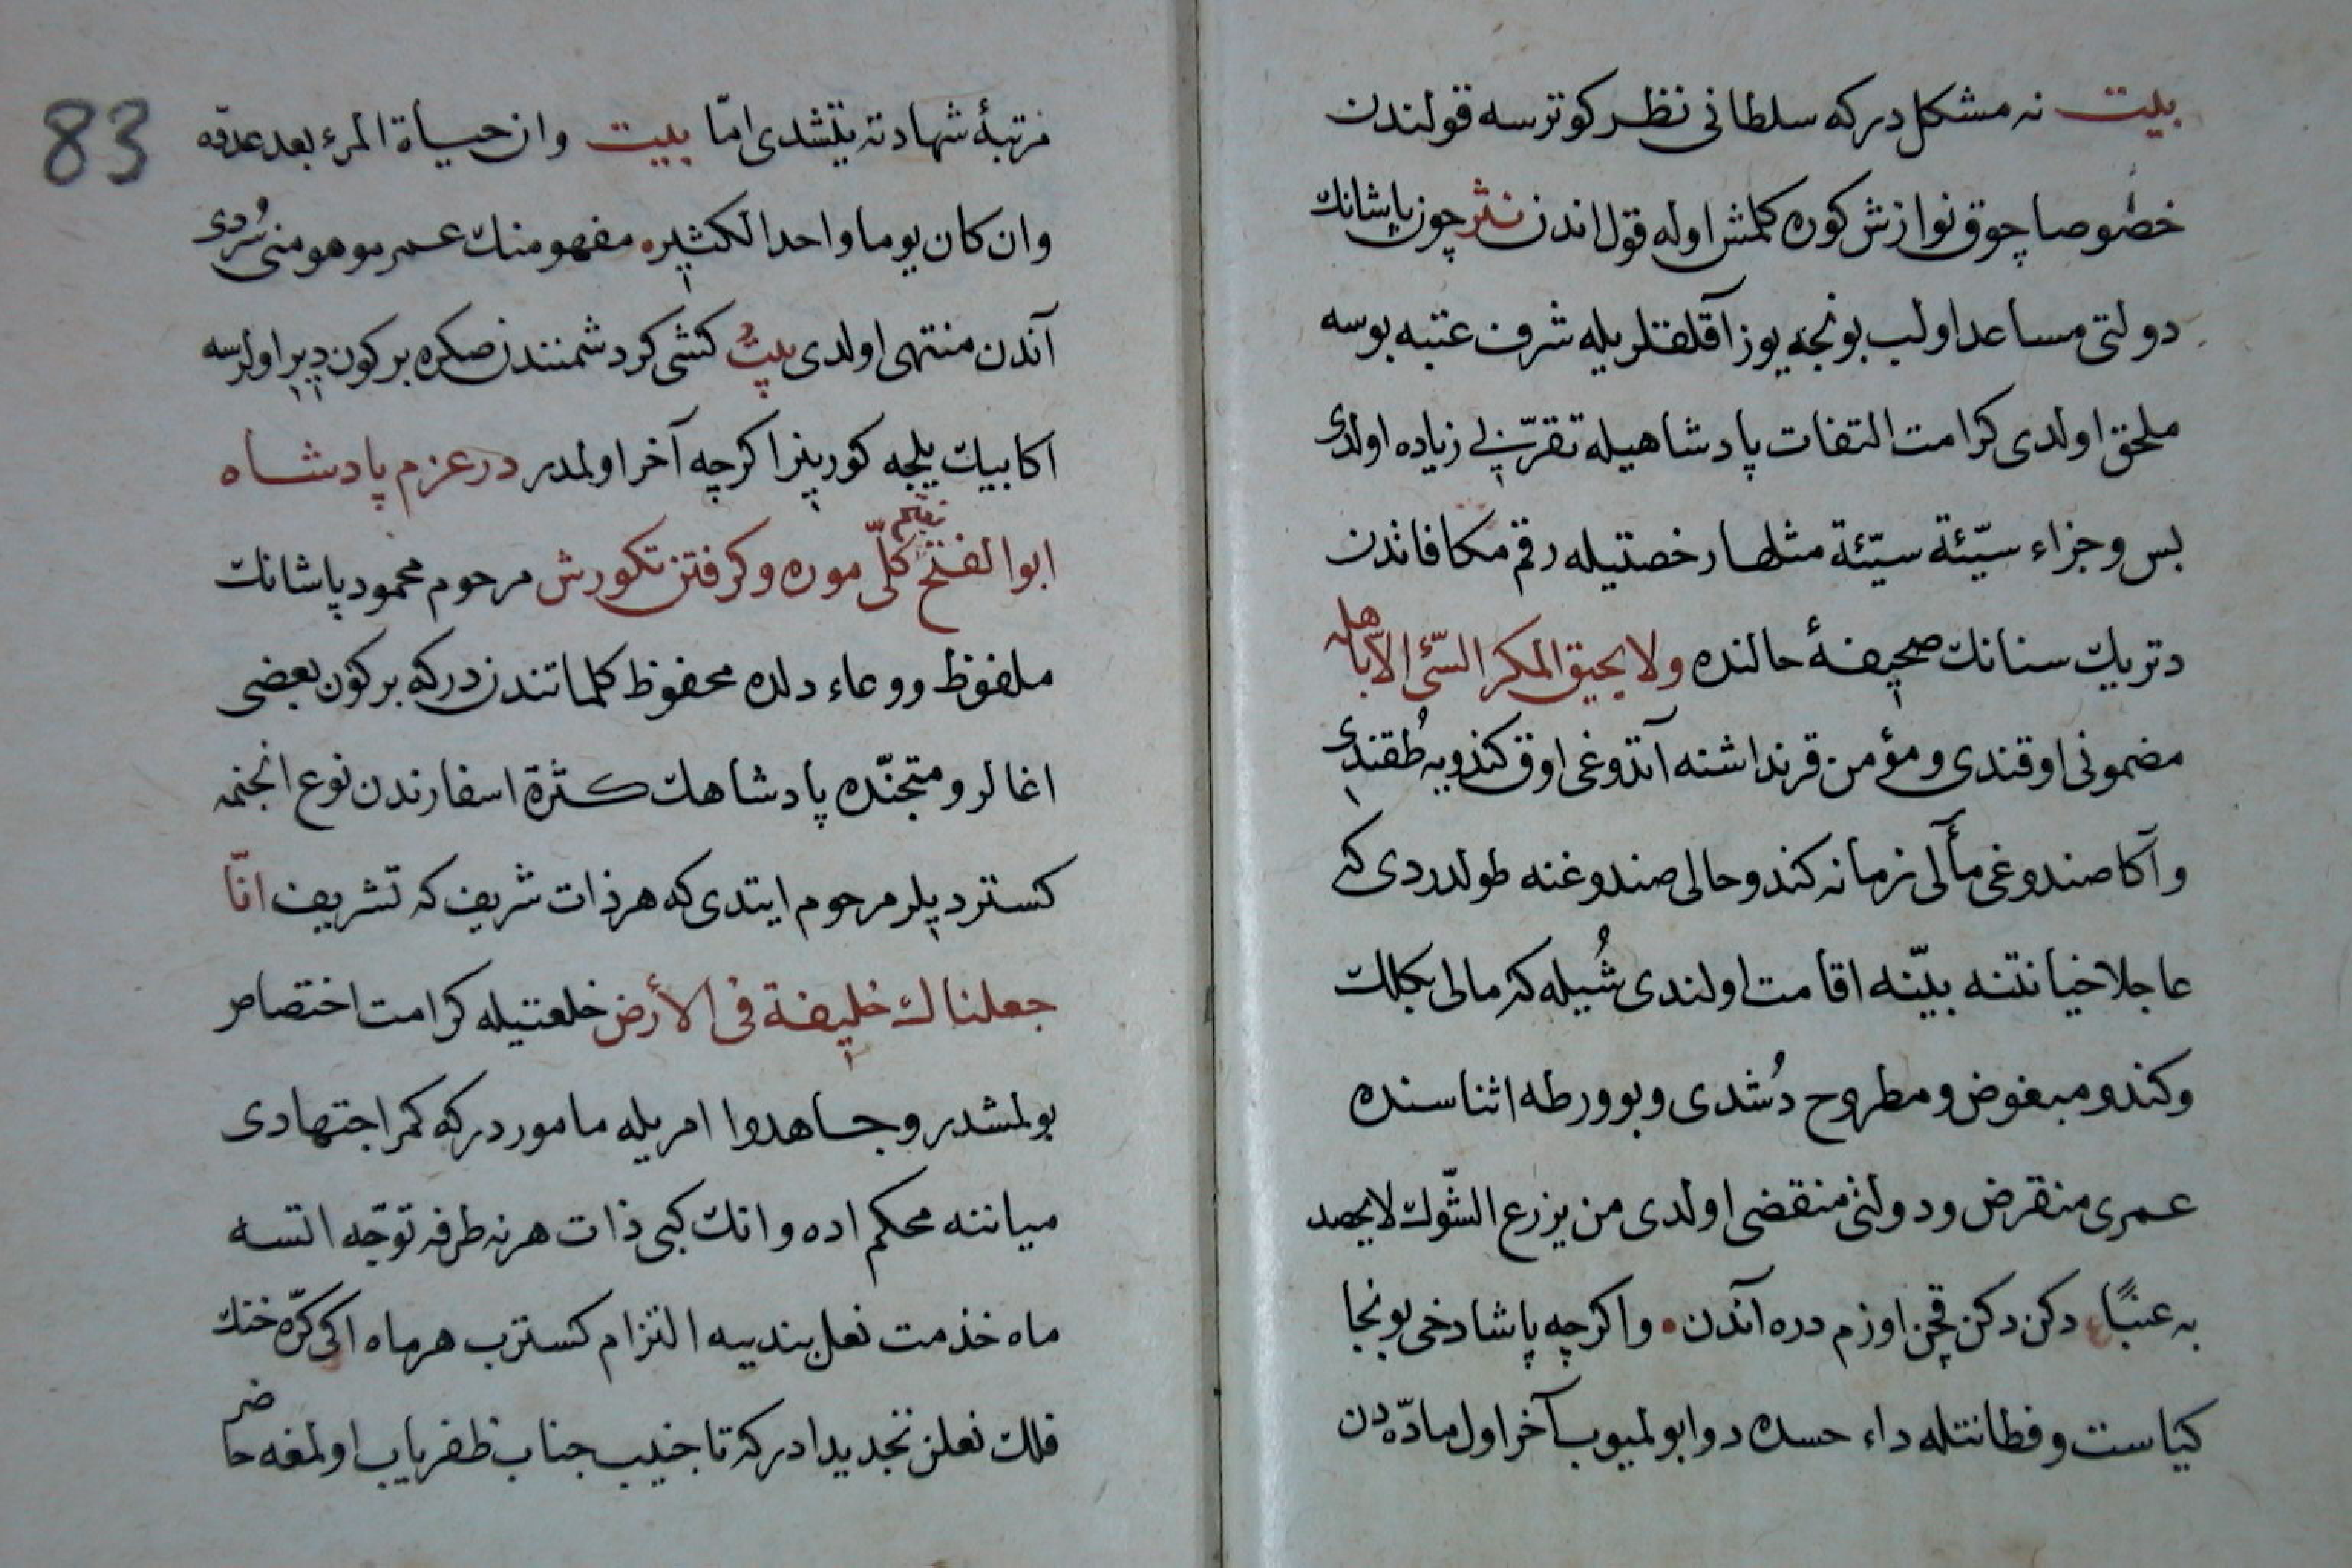 بيت نه مشكل دركه سلطانی نظر كوترسه قولندن
خصوصا چوق نوازش كوره كلمش اوله قول اندن نثر چون پاشانك
دولتی مساعد اولب بونجه يوز آقلقلريله شرف عتبه بوسه
ملحق اولدی كرامت التفات پادشاهيله تقربی زياده اولدی
بس وجزاء سيّئة سيّئة مثلها رخصتيله رقم مكافاندن
دتريك سنانك صحيفۀ حالنده ولا يحيق المكر السّیٔ الّا باهله
مضمونی اوقندی ومؤمن قرنداشنه آتدوغی اوق كندويه طُقندی
وآكا صندوغی مآلی زمانه كندو حالی صندوغنه طولدردی كه
عاجلا خيانتنه بيّنه اقامت اولندی شُيله كه مالی بكلك
وكندو مبغوض ومطروح دُشدی وبو ورطه اثناسنده
عمری منقرض ودولتی منقضی اولدی من يزرع الشّوك لا يحصد
به عنبًا دكن دكن قچن اوزم دره آندن • واكرچه پاشا دخی بونجا
كياست وفطانتله داء حسده دوا بولميوب آخر اول مادّه دن
83
مرتبۀ شهادته يتشدی امّا بيت وان حياة المرء بعد عدوّه
وان كان يوما واحدا لكثير • مفهومنك عمر موهومنی سُردی
آندن منتهی اولدی بيت كشی كر دشمنندن صكره بر كون دير اولرسه
اكا بيك ييلجه كورينر اكرچه آخر اولمدر در عزم پادشاه
ابو الفتح بفتح كلّی موره وكرفتن تكورش مرحوم محمود پاشانك
ملفوظ ووعاء دلده محفوظ كلماتندن دركه بر كون بعضی
اغالر ومتجنّده پادشاهك كثرة اسفارندن نوع انجنمه
كسترديلر مرحوم ايتدی كه هر ذات شريف كه تشريف انّا
جعلناك خليفة فی الأرض خلعتيله كرامت اختصاص
بولمشدر وجاهدوا امريله مامور دركه كمر اجتهادی
مياننه محكم اده وانك كبی ذات هر نه طرفه توجّه اتسه
ماه خذمت نعل بندييه التزام كسترب هر ماه اكی كرّه خنك
فلك نعلن تجديد ادر كه تا جنيب جناب ظفرياب اولمغه حاضر